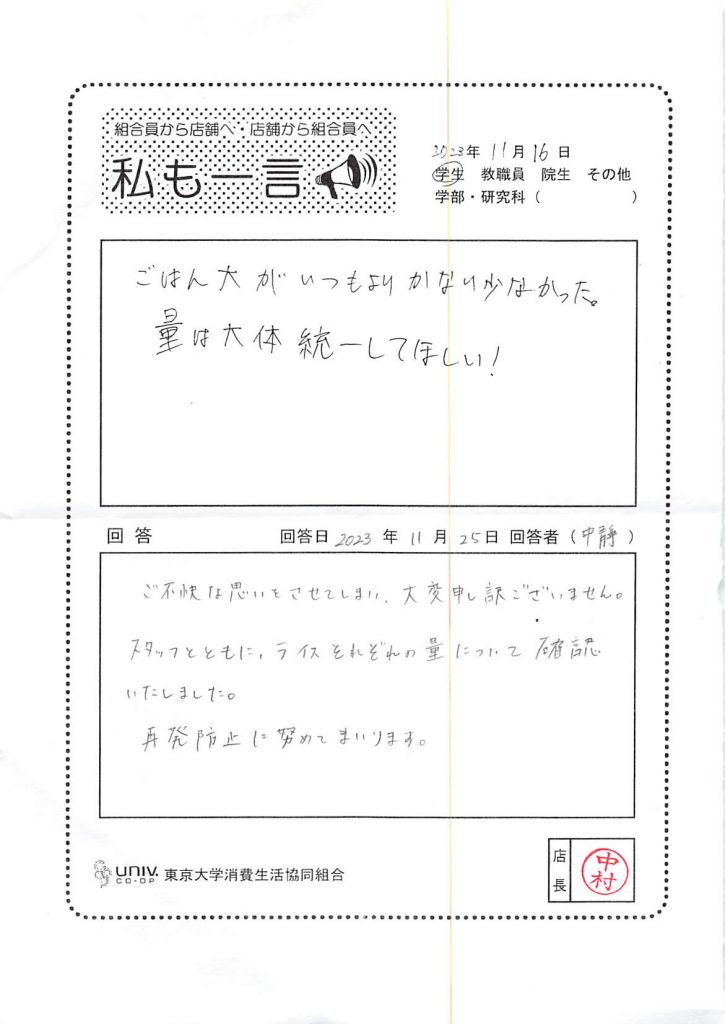 組合員から店舗へ・店舗から組合員へ
私も一言
2023年 11月 16日
学生 教職員 院生 その他
学部・研究科（ ）
ごはん大がいつもよりかなり少なかった。
量は大体統一してほしい!
回答 回答日 2023 年 11 月 25日 回答者（中靜）
ご不快な思いをさせてしまい、大変申し訳ございません。
スタッフとともに、ライスそれぞれの量について確認
いたしました。
再発防止に努めてまいります。
UNIV. CO-OP 東京大学消費生活協同組合
店長 中村